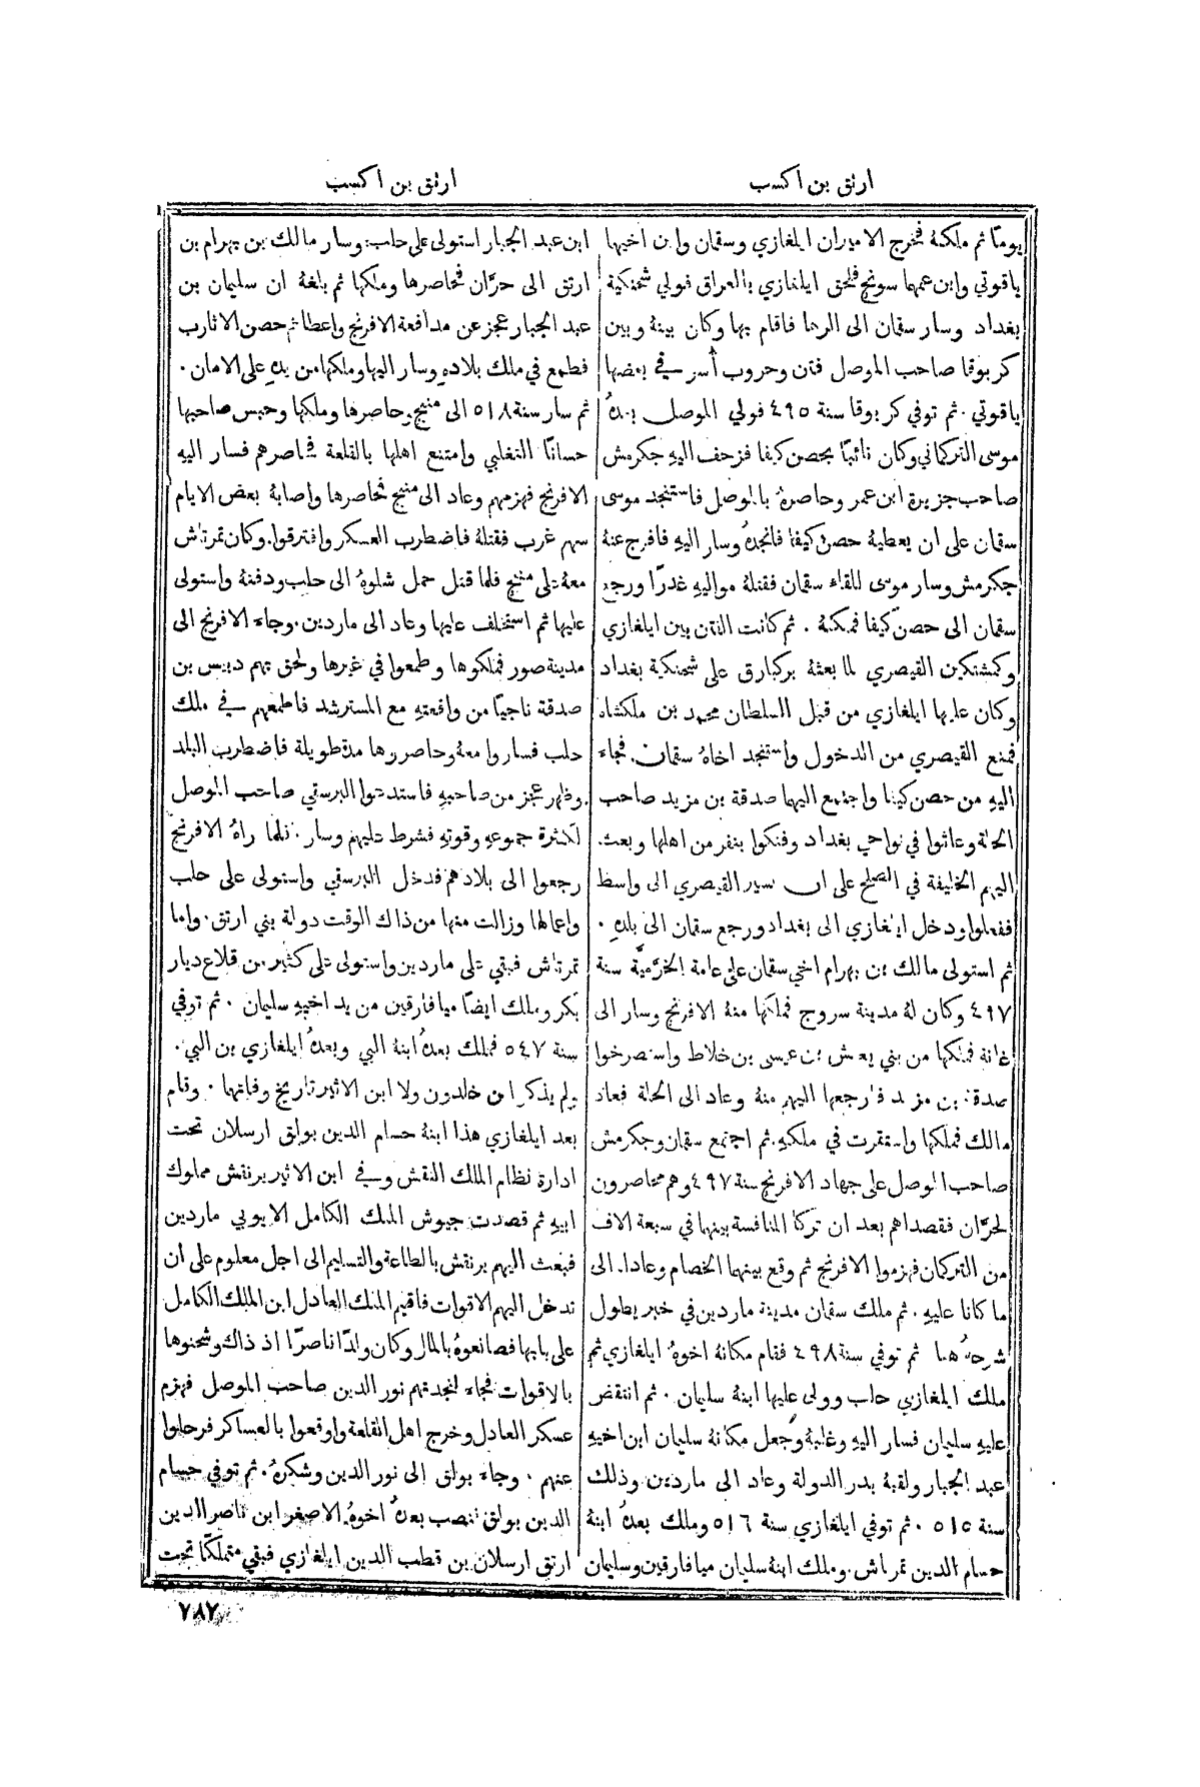 ارتق بن اكسب
ارتق بن اكسب
يومًا ثم ملكهُ فخرج الاميران ايلغازي وسقمان وابن اخيهما
ياقوتي وابن عمهما سونج فلحق ايلغازي بالعراق فولي شحنكية
بغداد وسار سقمان الى الرها فاقام بها وكان بينهُ وبين
كربوقا صاحب الموصل فتن وحروب أُسر في بعضها
ياقوتي . ثم توفي كربوقا سنة ٤٩٥ فولي الموصل بعدهُ
موسى التركماني وكان نائبًا بحصن كيفا فزحف اليهِ جكرمش
صاحب جزيرة ابن عمر وحاصرهُ بالموصل فاستنجد موسى
سقمان على ان يعطيهُ حصن كيفا فانجدهُ وسار اليهِ فافرج عنهُ
جكرمش وسار موسى للقاء سقمان فقتلهُ مواليهِ غدرًا ورجع
سقمان الى حصن كيفا فملكهُ . ثم كانت الفتن بين ايلغازي
وكمشتكين القيصري لما بعثهُ بركيارق على شحنكية بغداد
وكان عليها ايلغازي من قبل السلطان محمد بن ملكشاه
فمنع القيصري من الدخول واستنجد اخاهُ سقمان. فجاء
اليهِ من حصن كيفا واجتمع اليهما صدقة بن مزيد صاحب
الحلة وعاثوا في نواحي بغداد وفتكوا بنفر من اهلها وبعث.
اليهم الخليفة في الصلح على ان يسير القيصري الى واسط
ففعلوا ودخل ايلغازي الى بغداد ورجع سقمان الى بلدهِ .
ثم استولى مالك بن بهرام اخي سقمان على عامة الخرَّمِيَّة سنة
٤٩٧ وكان لهُ مدينة سروج فملكها منهُ الافرنج وسار الى
غانة فملكها من بني يعش بن عيسى بن خلاط واستصرخوا
صدقة بن مزيد فارجعها اليهم منهُ وعاد الى الحلة فعاد
مالك فملكها واستقرت في ملكهِ. ثم اجتمع سقمان وجكرمش
صاحب الموصل على جهاد الافرنج سنة ٤٩٧ وهم محاصرون
لحرَّان فقصداهم بعد ان تركا المنافسة بينهما في سبعة الاف
من التركمان فهزموا الافرنج ثم وقع بينهما الخصام وعادا. الى
ما كانا عليهِ . ثم ملك سقمان مدينة ماردين في خبر يطول
شرحهُ هنا ثم توفي سنة ٤٩٨ فقام مكانهُ اخوهُ ايلغازي ثم
ملك ايلغازي حلب وولى عليها ابنهُ سليمان . ثم انتقض
عليهِ سليمان فسار اليهِ وغلبهُ وجعل مكانهُ سليمان ابن اخيهِ
عبد الجبار ولقبهُ بدر الدولة وعاد الى ماردين وذلك
سنة ٥١٥ . ثم توفي ايلغازي سنة ٥١٦ وملك بعدهُ ابنهُ
حسام الدين تمرتاش. وملك ابنهُ سليمان ميافارقين وسليمان
ابن عبد الجبار استولى على حلب وسار مالك بن بهرام بن
ارتق الى حرَّان فحاصرها وملكها ثم بلغهُ ان سليمان بن
عبد الجبار عجز عن مدافعة الافرنج واعطاهم حصن الاثارب
فطمع في ملك بلادهِ وسار اليها وملكها من يدهِ على الامان .
ثم سار سنة ٥١٨ الى منبج وحاصرها وملكها وحبس صاحبها
حسانًا التغلبي وامتنع اهلها بالقلعة فحاصرهم فسار اليهِ
الافرنج فهزمهم وعاد الى منبج فحاصرها واصابهُ بعض الايام
سهم غرب فقتلهُ فاضطرب العسكر وافترقوا. وكان تمرتاش
معهُ على منبج فلما قتل حمل شلوهُ الى حلب ودفنهُ واستولى
عليها ثم استخلف عليها وعاد الى ماردين. وجاء الافرنج الى
مدينة صور فملكوها وطمعوا في غيرها ولحق بهم دبيس بن
صدقة ناجيًا من واقعتهِ مع المسترشد فاطمعهم في ملك
حلب فساروا معهُ وحاصروها مدة طويلة فاضطرب البلد
وظهر عجز من صاحبهِ فاستدعوا البرسقي صاحب الموصل
لكثرة جموعهِ وقوتهِ فشرط عليهم وسار . فلما راهُ الافرنج
رجعوا الى بلادهم فدخل البرسقي واستولى على حلب
واعمالها وزالت منها من ذاك الوقت دولة بني ارتق. واما
تمرتاش فبقي على ماردين واستولى على كثير من قلاع ديار
بكر وملك ايضًا ميافارقين من يد اخيهِ سليمان . ثم توفي
سنة ٥٤٧ فملك بعدهُ ابنهُ البي وبعدهُ ايلغازي بن البي.
ولم يذكر ابن خلدون ولا ابن الاثير تاريخ وفاتهما . وقام
بعد ايلغازي هذا ابنهُ حسام الدين بولق ارسلان تحت
ادارة نظام الملك النقش وفي ابن الاثير برنقش مملوك
ابيهِ ثم قصدت جيوش الملك الكامل الايوبي ماردين
فبعث اليهم برنقش بالطاعة والتسليم الى اجل معلوم على ان
تدخل اليهم الاقوات فاقيم الملك العادل ابن الملك الكامل
على بابها فصانعوهُ بالمال وكان ولدًا ناصرًا اذ ذاك وشحنوها
بالاقوات فجاء لنجدتهم نور الدين صاحب الموصل فهزم
عسكر العادل وخرج اهل القلعة واوقعوا بالعساكر فرحلوا
عنهم . وجاء بولق الى نور الدين وشكرهُ. ثم توفي حسام
الدين بولق فنصب بعدهُ اخوهُ الاصغر ابن ناصر الدين
ارتق ارسلان بن قطب الدين ايلغازي فبقي متملكًا تحت
٧٨٧